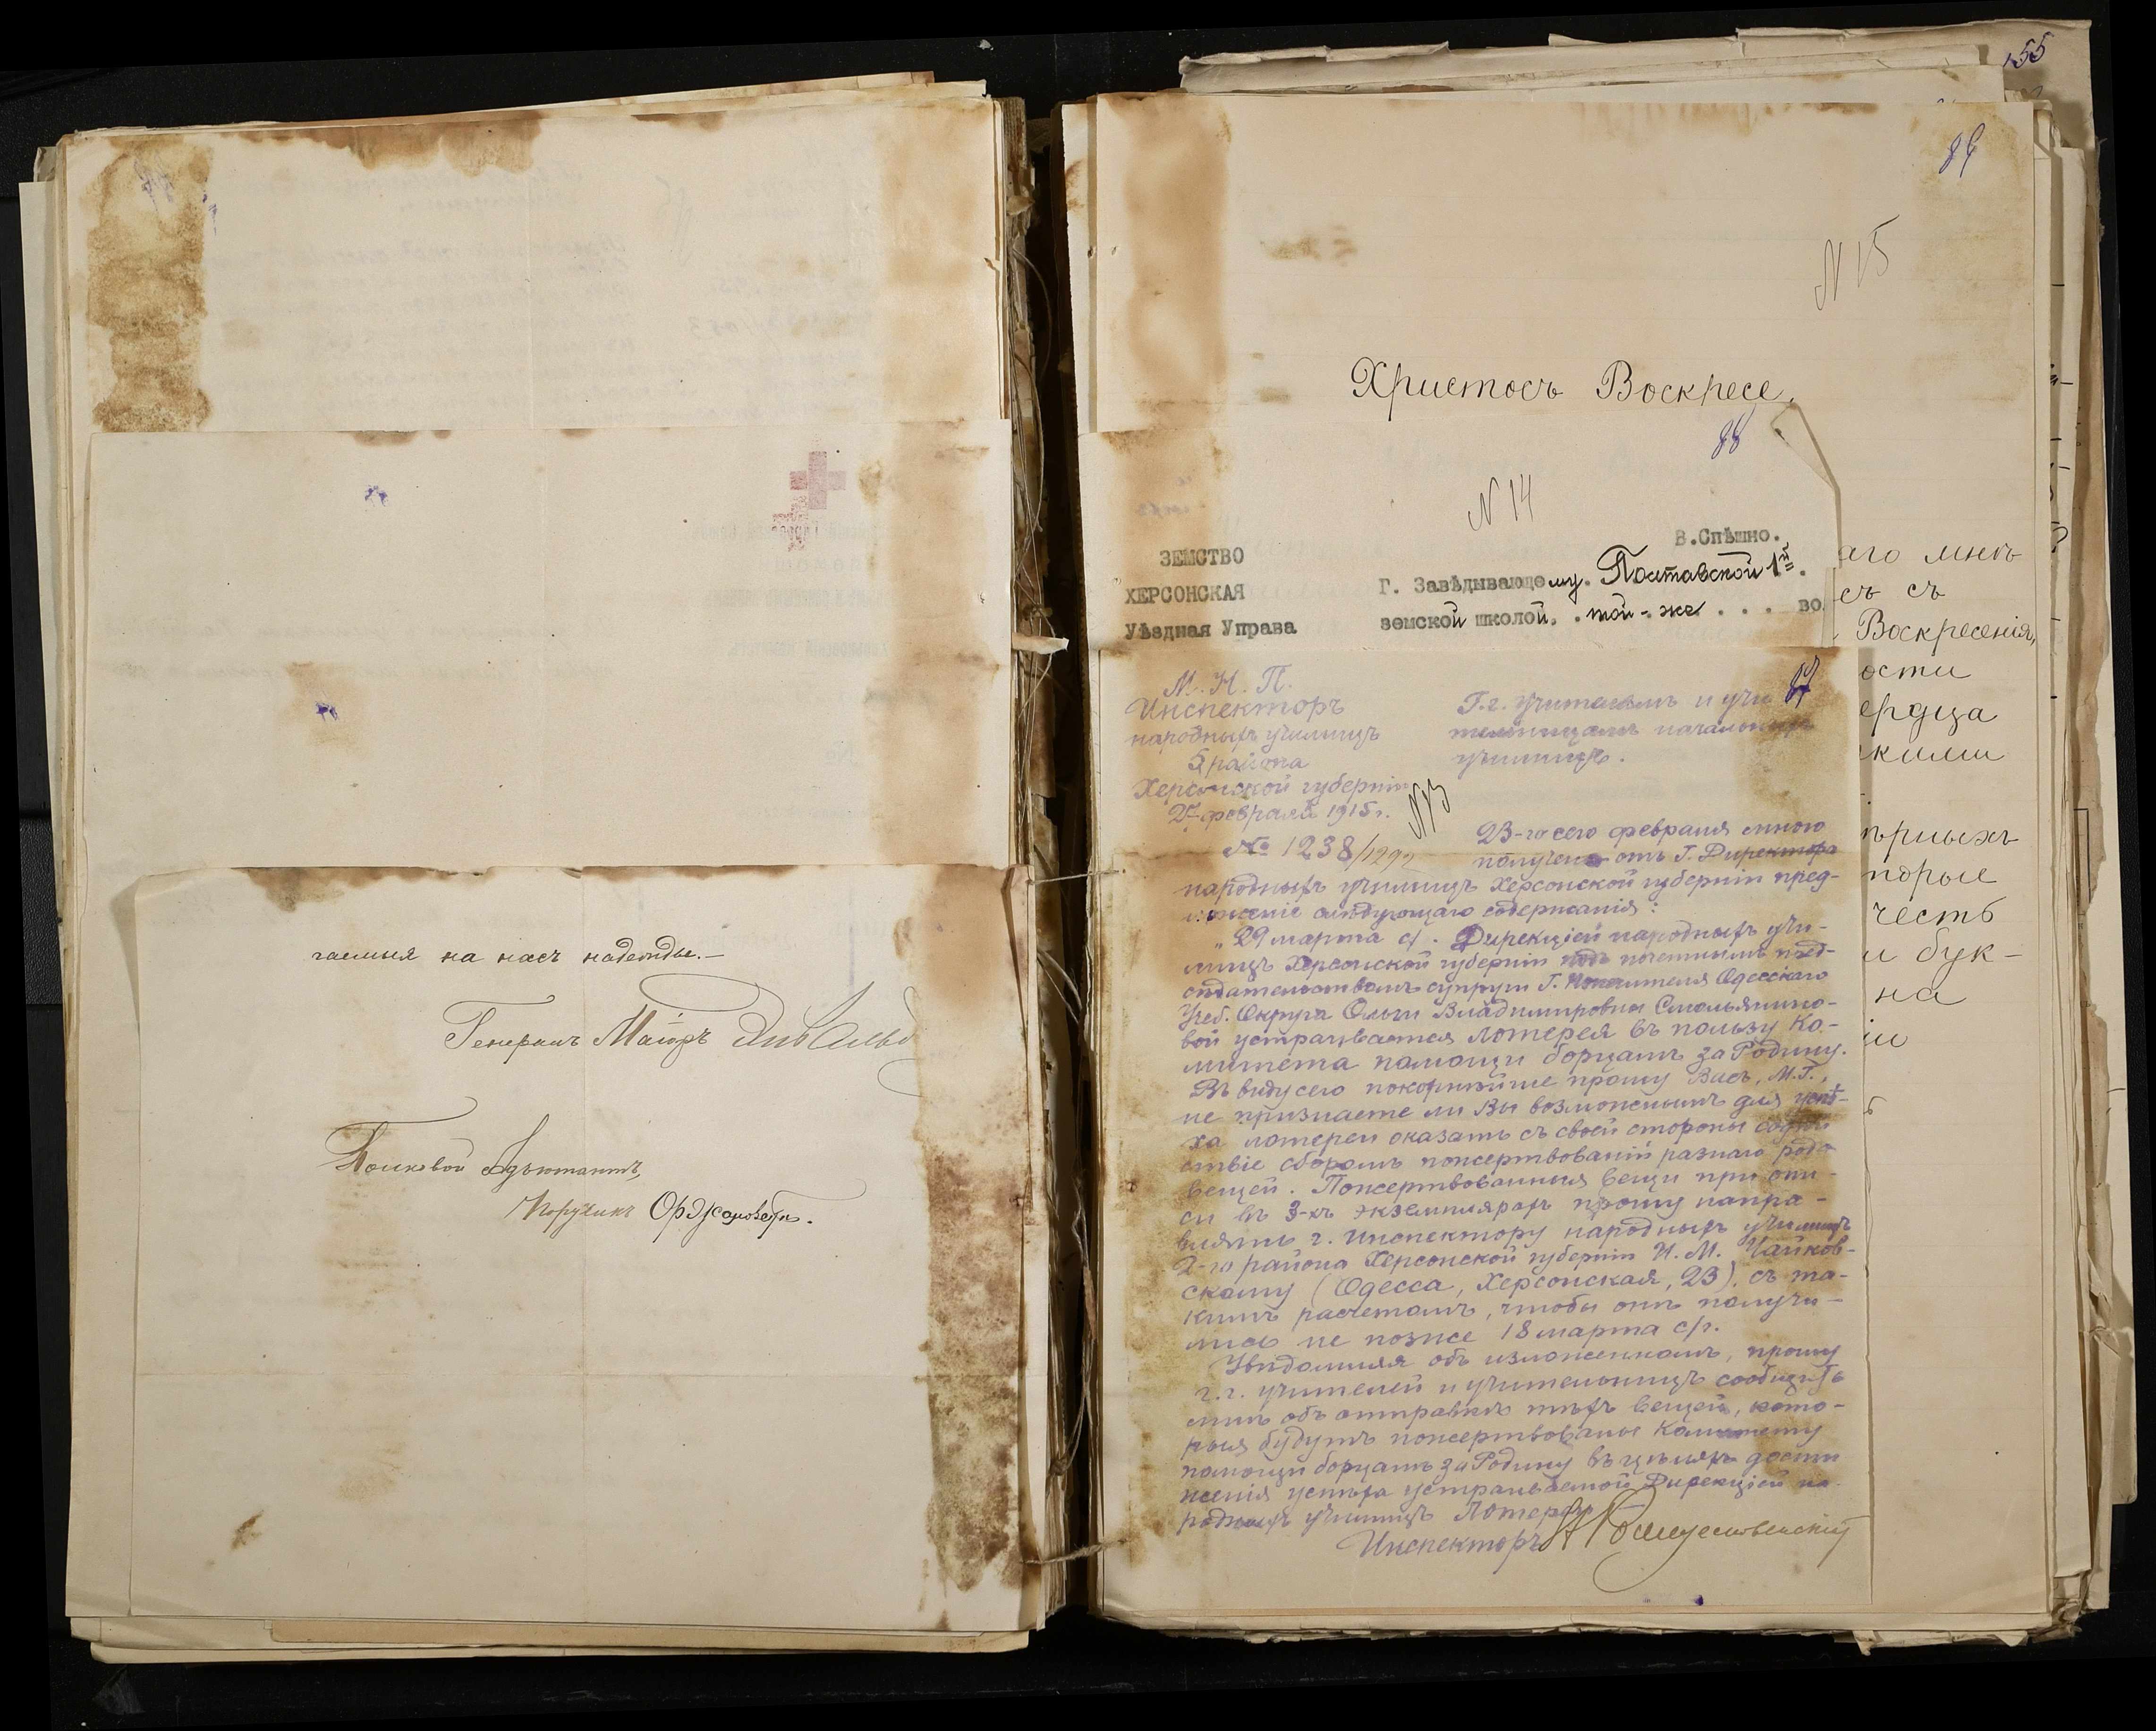 гаемыя на насъ надежды.—
Генералъ Маіоръ
Полковой Адъютантъ,
Поручикъ
155
89
N 15
Христосъ Воскресе.
88
N 14
В.Спѣшно.
ЗЕМСТВО
ХЕРСОНСКАЯ
Уѣздная Управа
Г. Завѣдывающему. Полтавской 1й.
земской школой. . той-же . . . во
аго мнѣ
съ съ
Воскресенія,
ости
ердца
кими
торые
честь
и бук-
на
87
М. Н. П.
Инспекторъ
народныхъ училищъ
5 района
Херсонской губерніи
27 февраля 1915 г.
№ 1238/1292
N 13
Г.г. Учителямъ и учи
тельницамъ начальныхъ
училищъ.
23-го сего февраля мною
получено отъ Г. Директора
народныхъ училищъ Херсонской губерніи пред-
ложеніе слѣдующаго содержанія:
„29 марта с/г. Дирекціей народныхъ учи-
лищъ Херсонской губерніи подъ почетнымъ пред-
сѣдательствомъ супруги Г. Попечителя Одесскаго
Учеб. Округа Ольги Владимировны Смольянино-
вой устраивается лотерея въ пользу Ко-
митета помощи борцамъ за Родину.
Въ виду сего покорнѣйше прошу Васъ, М.Г.,
не признаете ли Вы возможнымъ для успѣ-
ха лотереи оказать съ своей стороны содѣй
ствіе сборомъ пожертвованій разнаго рода
вещей. Пожертвованныя вещи при опи-
си въ 3-хъ экземплярахъ прошу напра-
влять г. инспектору народныхъ училищъ
2-го района Херсонской губерніи И. М. Чайков-
скому (Одесса, Херсонская, 23), съ та-
кимъ расчетомъ, чтобы онѣ получи-
лись не позже 18 марта с/г.
Увѣдомляя объ изложенномъ, прошу
г.г. учителей и учительницъ сообщить
мнѣ объ отправкѣ тѣхъ вещей, кото-
рыя будутъ пожертвованы Комитету
помощи борцамъ за Родину въ цѣляхъ дости
женія успѣха устраиваемой Дирекціей на-
родныхъ училищъ лотереи.
Инспекторъ